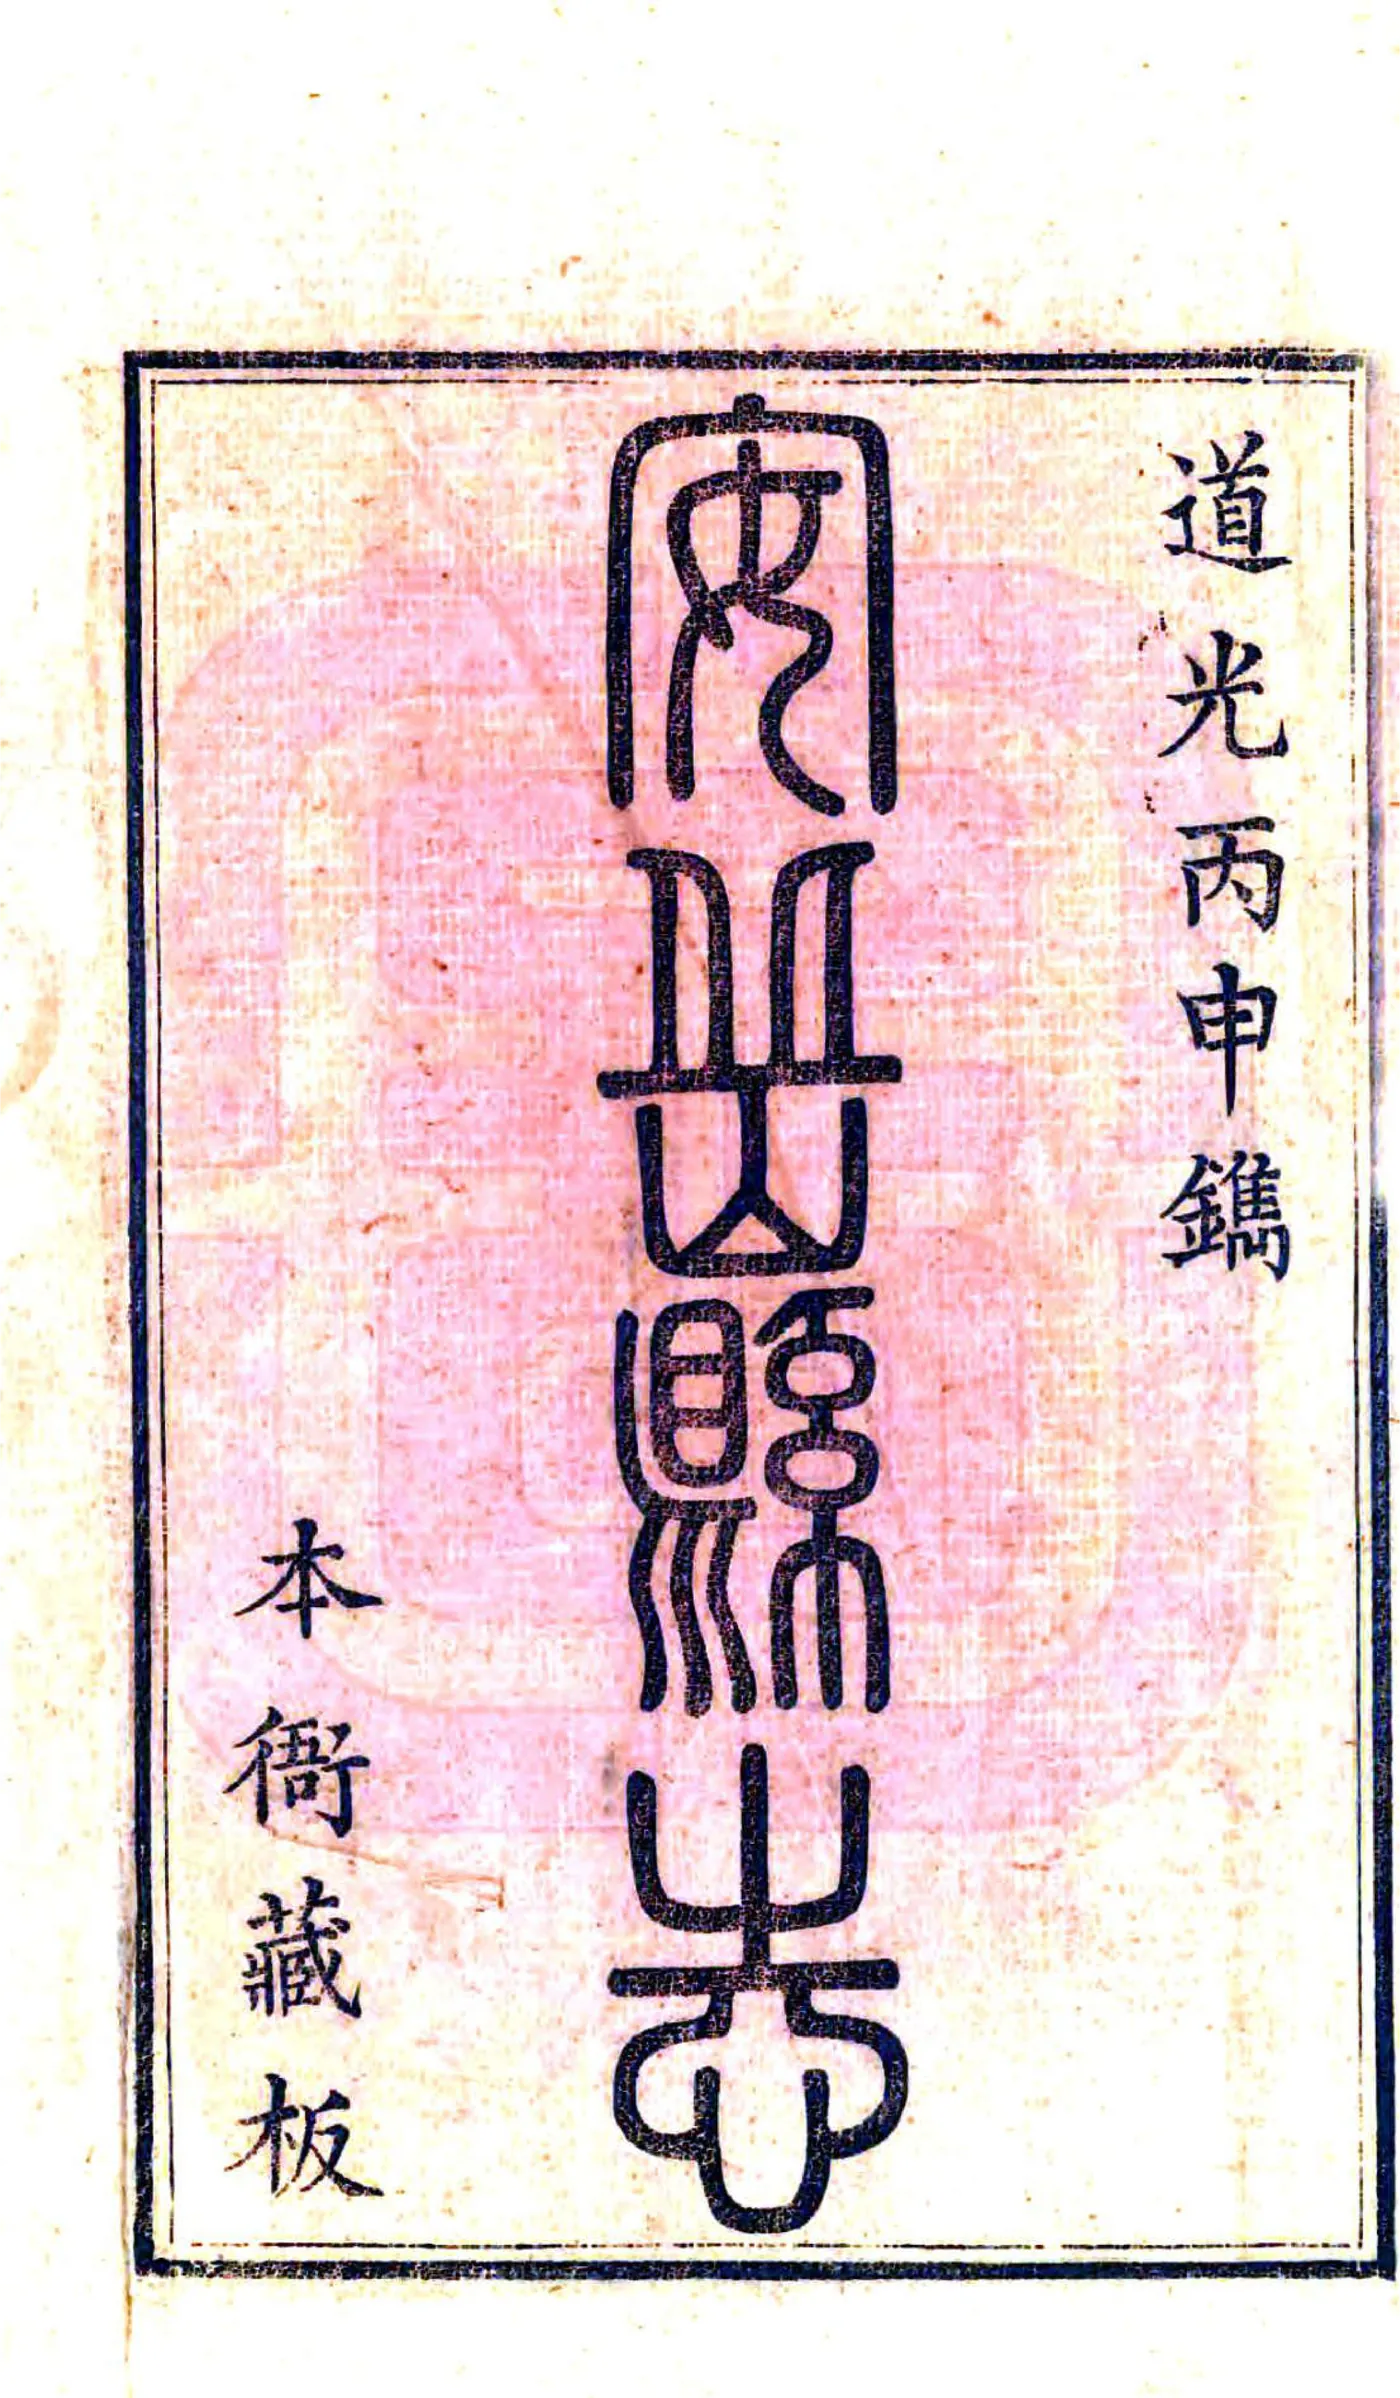 道光丙申鐫
安岳縣志
本衙藏板